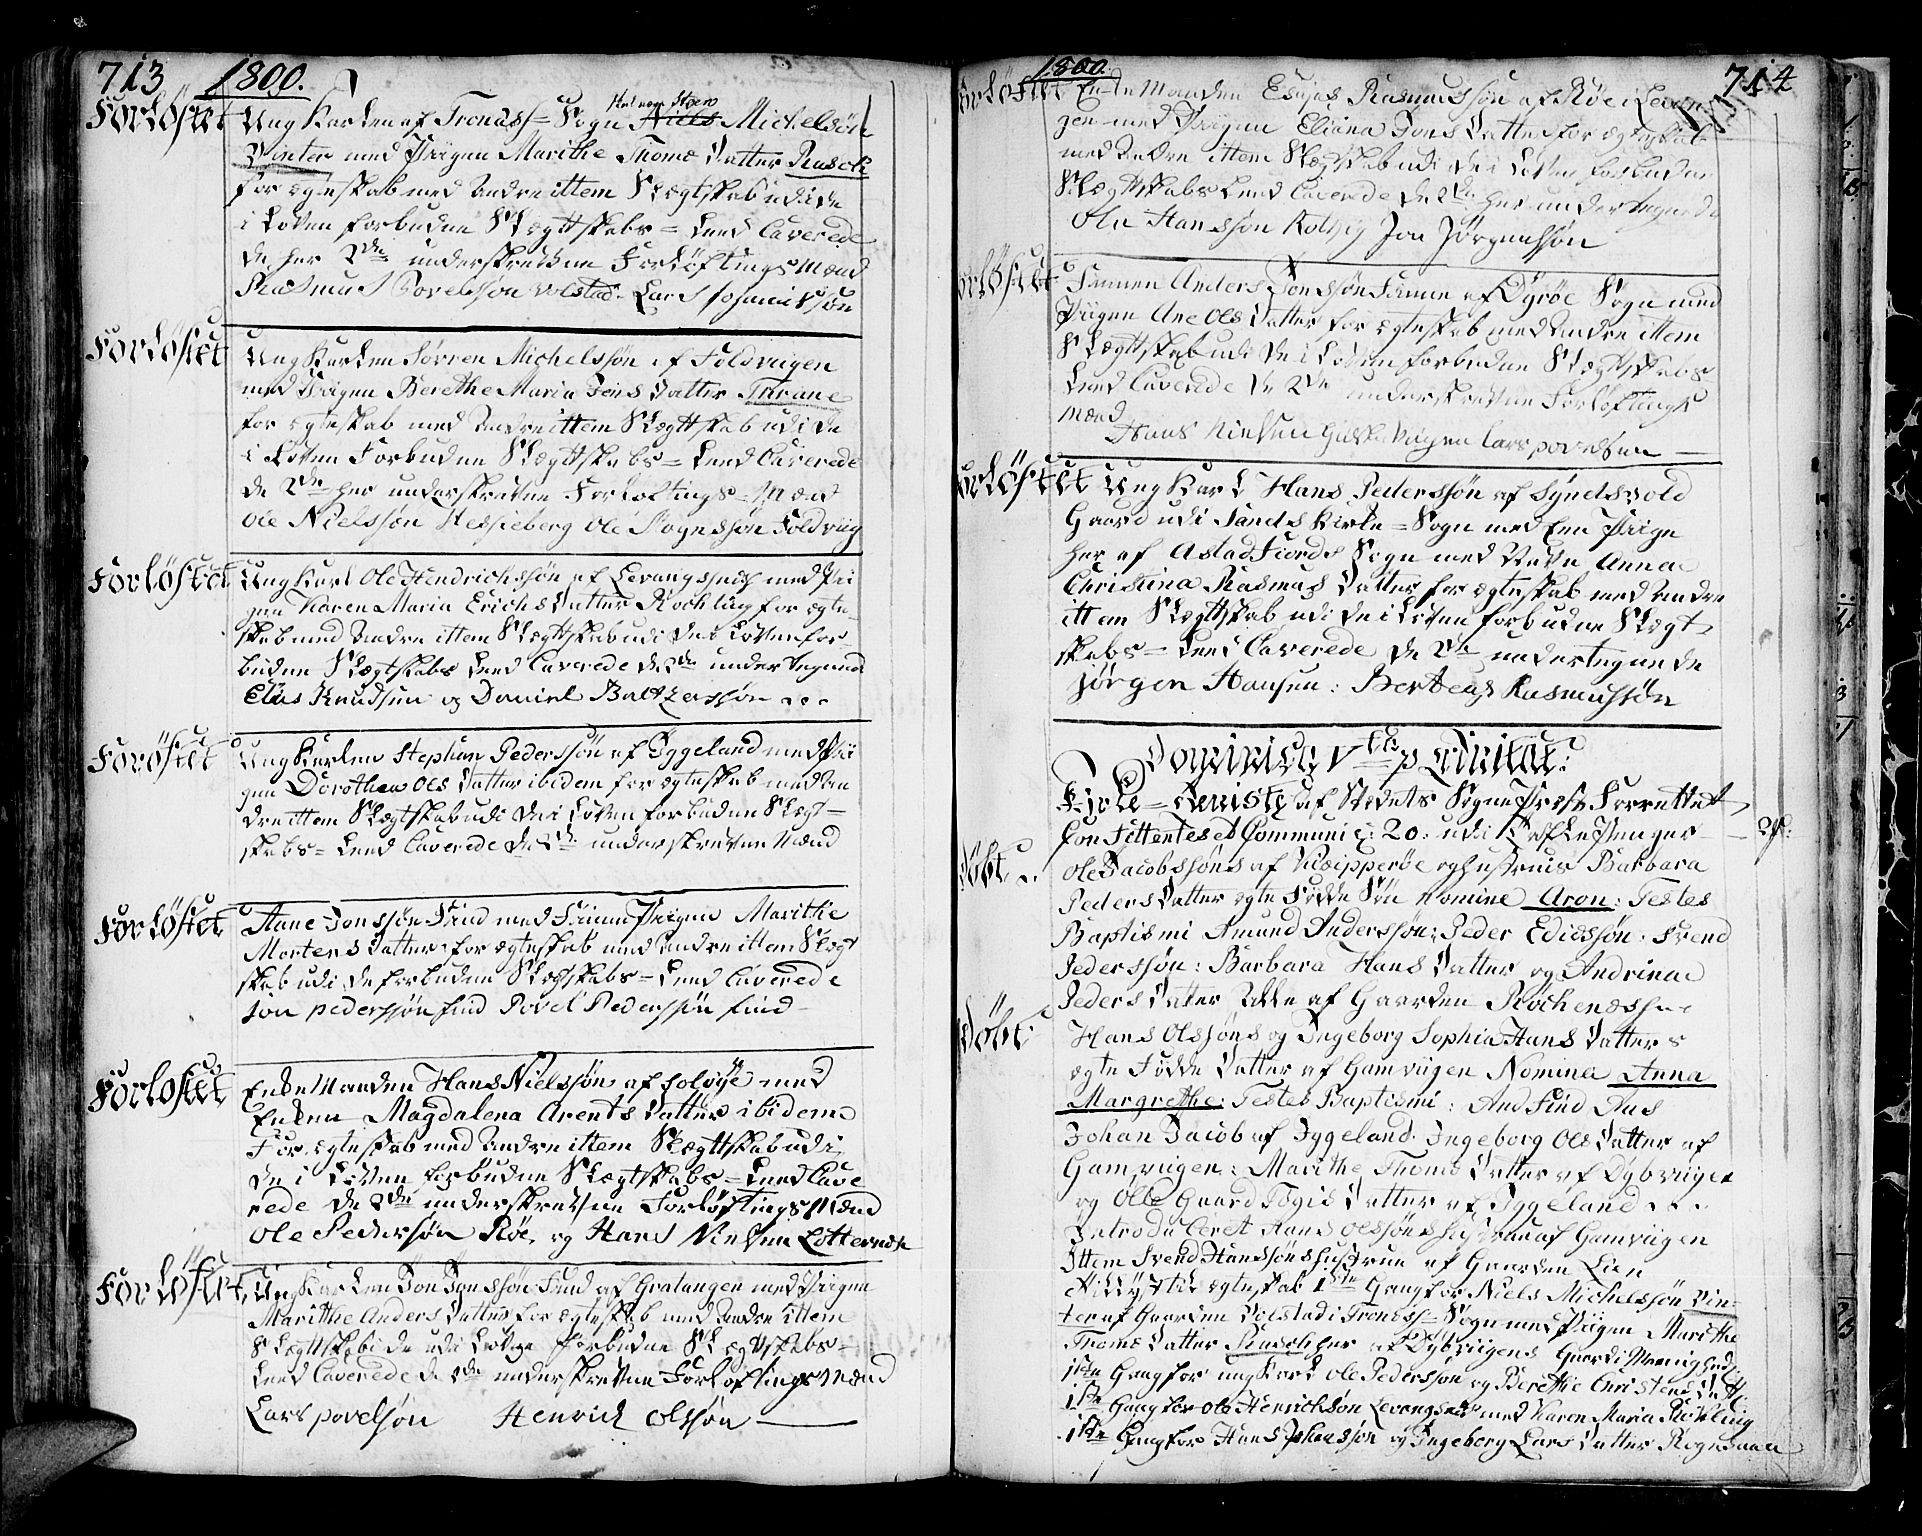 713 1800.
Forløstet Ung Karlen af Tronæss = Sogn Niels Michelsøn
Vinter med Piigen Marithe Thomæ Datter Rusch
for ægteskab med Andre ittem Slægtskab udi de
i Loven forbudne Slægttskabs = Leed Caverede
de her 2de underskrevne Forløftings Mænd
Rasmus Povelsøn Volstad. Lars
Forløstet Ung Karlen Sørren Michelssøn af Foldvigen
med Piigen Berethe Maria Jens Datter Thrane
for ægteskab med Andre ittem Slægttskab udi de
i Loven Forbudne Slægttskabs = Leed Caverede
de 2de her underskrevne Forløftings = Mænd
Ole Nielssøn Hessieberg Ole Mognessøn Foldviig
Forløstet Ung Karl Ole Hendrichssøn af Levangsnæs med Pii
gen Karen Maria Erichs Datter Røchling for ægte-
skab med Andre ittem Slægttskab udi de i Loven for-
budne Slægtskabs Leed Caverede de 2de undertegnede
Elias Knudsen og Daniel Baltzerssøn
Forøstet Ung Karlen Stephan Pederssøn af Iggeland med Pii
gen Dorothea Ols Datter ibidem for ægteskab med An
dre ittem Slægtskab udi de i Loven forbudne Slægt=
skabs = Leed Caverede de 2de underskrevne Mænd
Forløstet Aane Jonssøn Find med Finne Piigen Marithe
Mortens Datter for ægteskab med Andre ittem Slægt
skab udi de forbudne Slægtskabs = Leed Caverede
Jon pederssøn find Povel Pederssøn find
Forløstet Enke Manden Hans Nielssøn af Solvye med
Enken Magdalena Arents Datter ibidem
For ægteskab med Andre ittem Slægttskab udi
de i Loven forbudne Slægtskabs = Leed Cave
rede de 2de underskrevne Forløftings Mænd
Ole Pedersøn Røe, og Hans Nielsen
Forløstet Ung Karlen Jon Jonssøn Find af Gratangen med Piigen
Marithe Anders Datter for ægteskab med Andre ittem
Slægttskab i de udi Loven forbudne Slægttskabs =
Leed Caverede de 2de underskrevne Forløftings Mænd
Lars povelsøn Henrich Olssøn
1800. 714
Forløstet Enke Manden Esajas Rasmussøn af Røe i Levan
gen med Piigen Eliana Jons Datter for ægteskab
med Andre ittem Slægtskab udi de i Loven forbudne
Slægttskabs Leed Caverede de 2de her undertegnede
Ole Hanssøn Jon Jørgenssøn
Forløstet Finnen Anders Jonssøn Finne af Dyrøe Sogn med
Piigen Ane Ols Datter for ægteskab med Andre ittem
Slægttskab udi de i Loven forbudne Slægttskabs =
Leed Caverede de 2de underskrevne Forløftings
Mænd
Hans Nielsen Lars povelsen
Forløstet Ung Karl Hans Pederssøn af Syndsvold
Gaard udi Sands Kirke = Sogn med Een Piige
her af Astad Fiords Sogn med Navn Anna
Christina Rasmus Datter for ægteskab med Andre
ittem Slægttskab udi de i Loven forbudne Slægt
skabs = Leed Caverede de 2de undertegnede
Jørgen Hansen : Berteas Rasmussøn
Dominica Vte p Trinitat:
Kirke = Tieniste af Stedets Sogne Præst Forrettet
Confittentes et Communic: 20. udi Tavle Penger
Døbt Ole Jacobssøns af Klæpperøe og hustrues Barbara
Peders Datter ægte Fødde Søn Nomine Aron: Testes
Baptismi Amund Anderssøn: Peder Ediassøn: Svend
Pederssøn: Barbara Hans Datter og Andrinae
Peders Datter alle af Gaarden Røchenæss
Døbt Hans Olssøns og Ingeborg Sophia Hans Datters
ægte Fødde Datter af Gamvigen Nomina Anna
Margrethe: Testes Baptismi: And Find Aas
Johan Jacob af Iggeland. Ingeborg Ols Datter af
Gamvigen: Marithe Thoms Datter af Dybviigen
og Ole Gaard Datter af Iggeland
Introduceret Hans Olssøns Hustrue af Gamvigen
Ittem Svend Hanssøns Hustrue af Gaarden Lien
Tillyst til ægteskab 1ste Gang for Niels Michelssøn Vin-
ter af Gaarden Volstad i Tronæss = Sogn med Piigen Marithe
Thoms Datter Rusch her af Dybviigens Gaard i Menighed
1ste Gang for ung Karl Ole Pederssøn og Berethe Christens Datt:
1ste Gang for Ole Henrichsøn Levangsnæs med Karen Maria Røkling
1ste Gang for Hans Johanssøn og Ingeborg Lars Datter